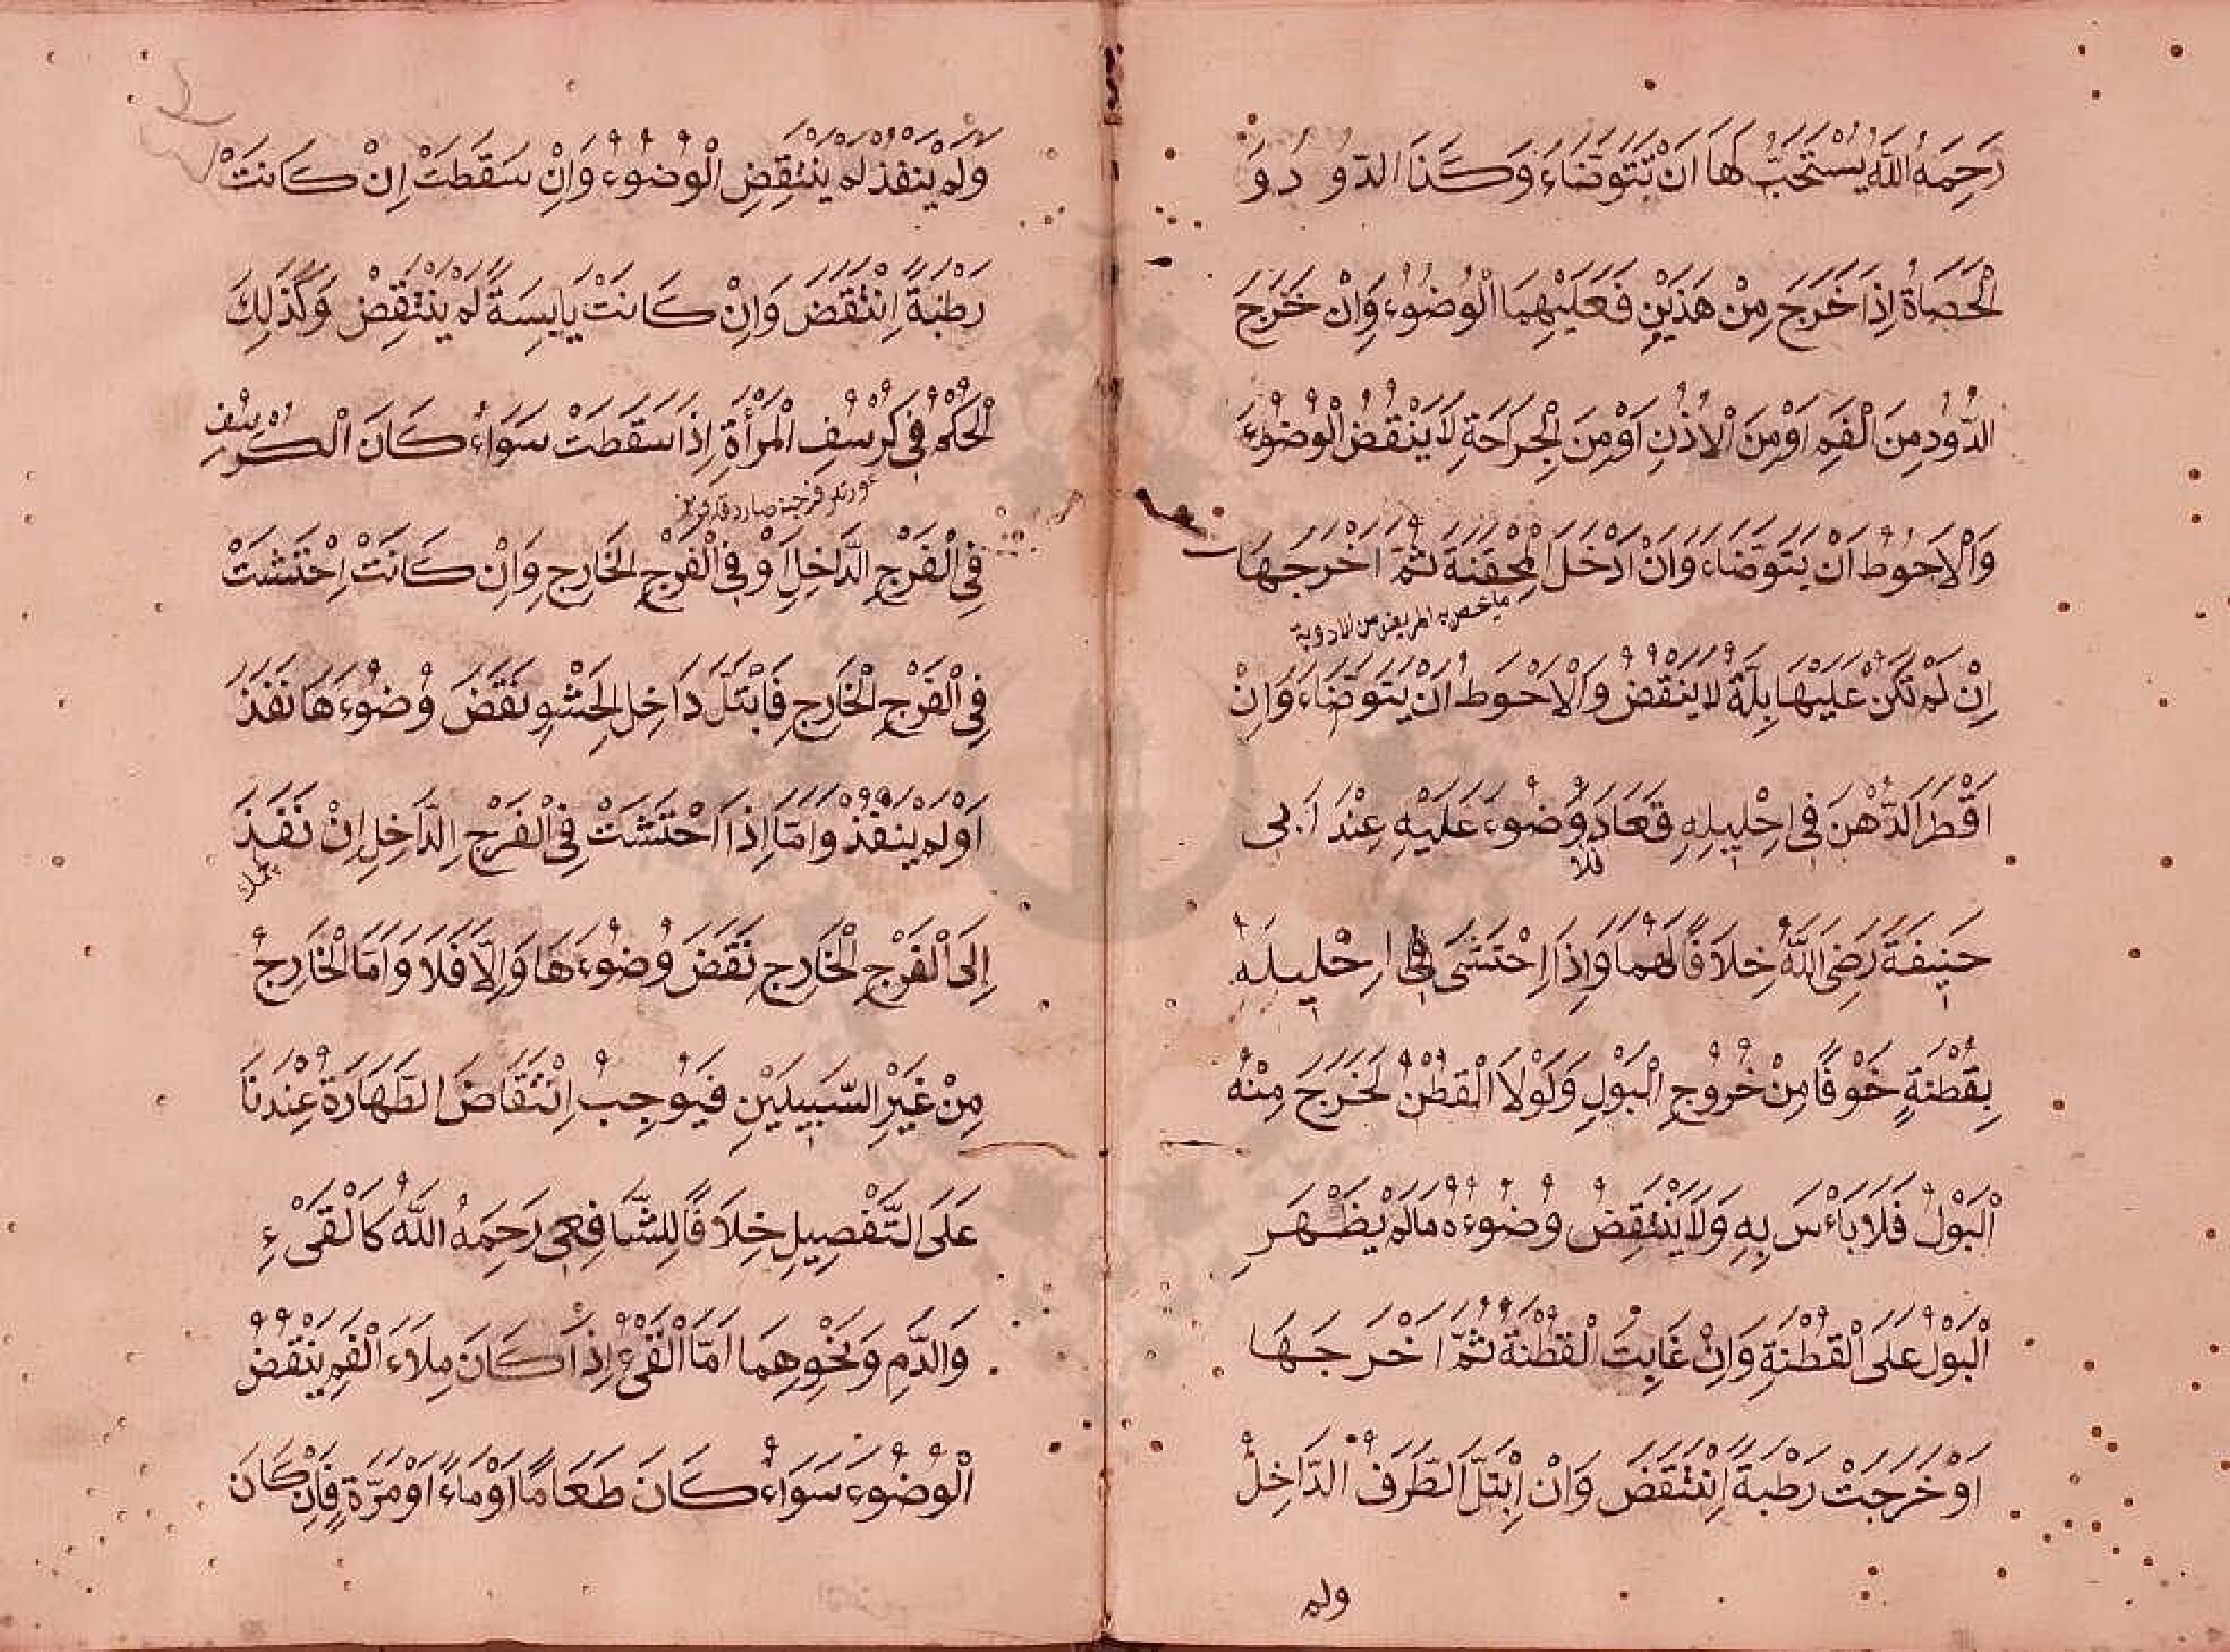 رَحِمَهُ اللّٰهُ يُسْتَحَبُّ لَهَا اَنْ تَتَوَضَّاءَ وَكَذَا الدُّودُ وَ
الْحَصَاةُ اِذَا خَرَجَ مِنْ هَذَيْنِ فَعَلَيْهِمَا الْوُضُوءُ وَاِنْ خَرَجَ
الدُّودُ مِنَ الْفَمِ اَوْ مِنَ الْاُذُنِ اَوْ مِنَ الْجِرَاحَةِ لَا يَنْقُضُ الْوُضُوءَ
وَالْاَحْوَطُ اَنْ يَتَوَضَّاءَ وَاَنْ اَدْخَلَ الْمِحْقَنَةَ ثُمَّ اَخْرَجَهَا
ما يخص به المريض من الادوية
اِنْ لَمْ تَكُنْ عَلَيْهَا بِلَّةٌ لَا يَنْقُضُ وَالْاَحْوَطُ اَنْ يَتَوَضَّاءَ وَاِنْ
اَقْطَرَ الدُّهْنَ فِي اِحْلِيلِهِ فَعَادَ وُضُوءَ عَلَيْهِ عِنْدَ اَبِى
فلا
حَنِيفَةَ رَضِىَ اللّٰهُ خِلَافًا لَهُمَا وَاِذَا اِحْتَشَى فِى اِحْلِيلِهِ
بِقُطْنَةٍ خَوْفًا مِنْ خُرُوجِ الْبَوْلِ وَلَوْلَا الْقُطْنُ لَخَرَجَ مِنْهُ
اَلْبَوْلُ فَلَا بَاءْسَ بِهِ وَلَا يَنْتَقِضُ وُضُوءُهُ مَا لَمْ يَظْهَرِ
اَلْبَوْلُ عَلَى الْقُطْنَةِ وَاِنْ غَابَتِ الْقُطْنَةُ ثُمَّ اَخْرَجَهَا
اَوْ خَرَجَتْ رَطْبَةً اِنْتَقَضَ وَاِنْ اِبْتَلَّ الطَّرَفُ الدَّاخِلُ
ولم
وَلَمْ يَنْفُذْ لَمْ يَنْتَقِضِ الْوُضُوءُ وَاِنْ سَقَطَتْ اِنْ كَانَتْ
رَطْبَةً اِنْتَقَضَ وَاِنْ كَانَتْ يَابِسَةً لَمْ يَنْتَقِضْ وَكَذٰلِكَ
الْحُكْمُ فِى كُرْسُفِ الْمَرْأَةِ اِذَا سَقَطَتْ سَوَاءٌ كَانَ الْكُرْسُفُ
فِى الْفَرْجِ الدَّاخِلِ اَوْ فِى الْفَرْجِ الْخَارِجِ وَاِنْ كَانَتْ اِحْتَشَتْ
فِى الْفَرْجِ الْخَارِجِ فَابْتَلَّ دَاخِلُ الْحَشْوِ نَقَضَ وُضُوءَهَا نَفَذَ
اَوْ لَمْ يَنْفُذْ وَاَمَّا اِذَا احْتَشَتْ فِى الْفَرْجِ الدَّاخِلِ اِنْ نَفَذَ
اِلَى الْفَرْجِ الْخَارِجِ نَقَضَ وُضُوءَهَا وَاِلَّا فَلَا وَاَمَّا الْخَارِجُ
مِنْ غَيْرِ السَّبِيلَيْنِ فَيُوجِبُ اِنْتِقَاضَ الطَّهَارَةُ عِنْدَنَا
عَلَى التَّفْصِيلِ خِلَافًا لِلشَّافِعِى رَحِمَهُ اللّٰهُ كَالْقَىْءِ
وَالدَّمِ وَنَحْوِهِمَا اَمَّا الْقَىْءُ اِذَا كَانَ مِلَاءَ الْفَمِ يَنْقُضُ
الْوُضُوءَ سَوَاءٌ كَانَ طَعَامًا اَوْ مَاءً اَوْ مَرَّةٍ فَاِنْ كَانَ